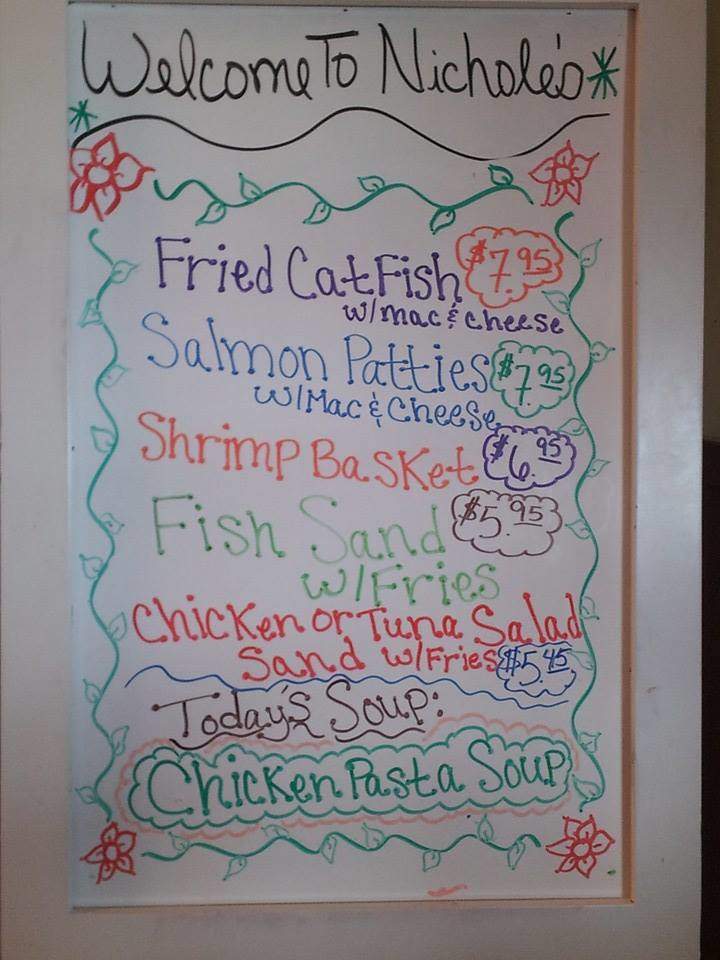 Welcome To Nichole's
Fried CatFish $7.95
w/mac & cheese
Salmon Patties $7.95
w/Mac & Cheese
Shrimp Basket $6.95
Fish Sand $5.95
w/Fries
Chicken or Tuna Salad
Sand w/Fries $5.45
Today's Soup:
Chicken Pasta Soup